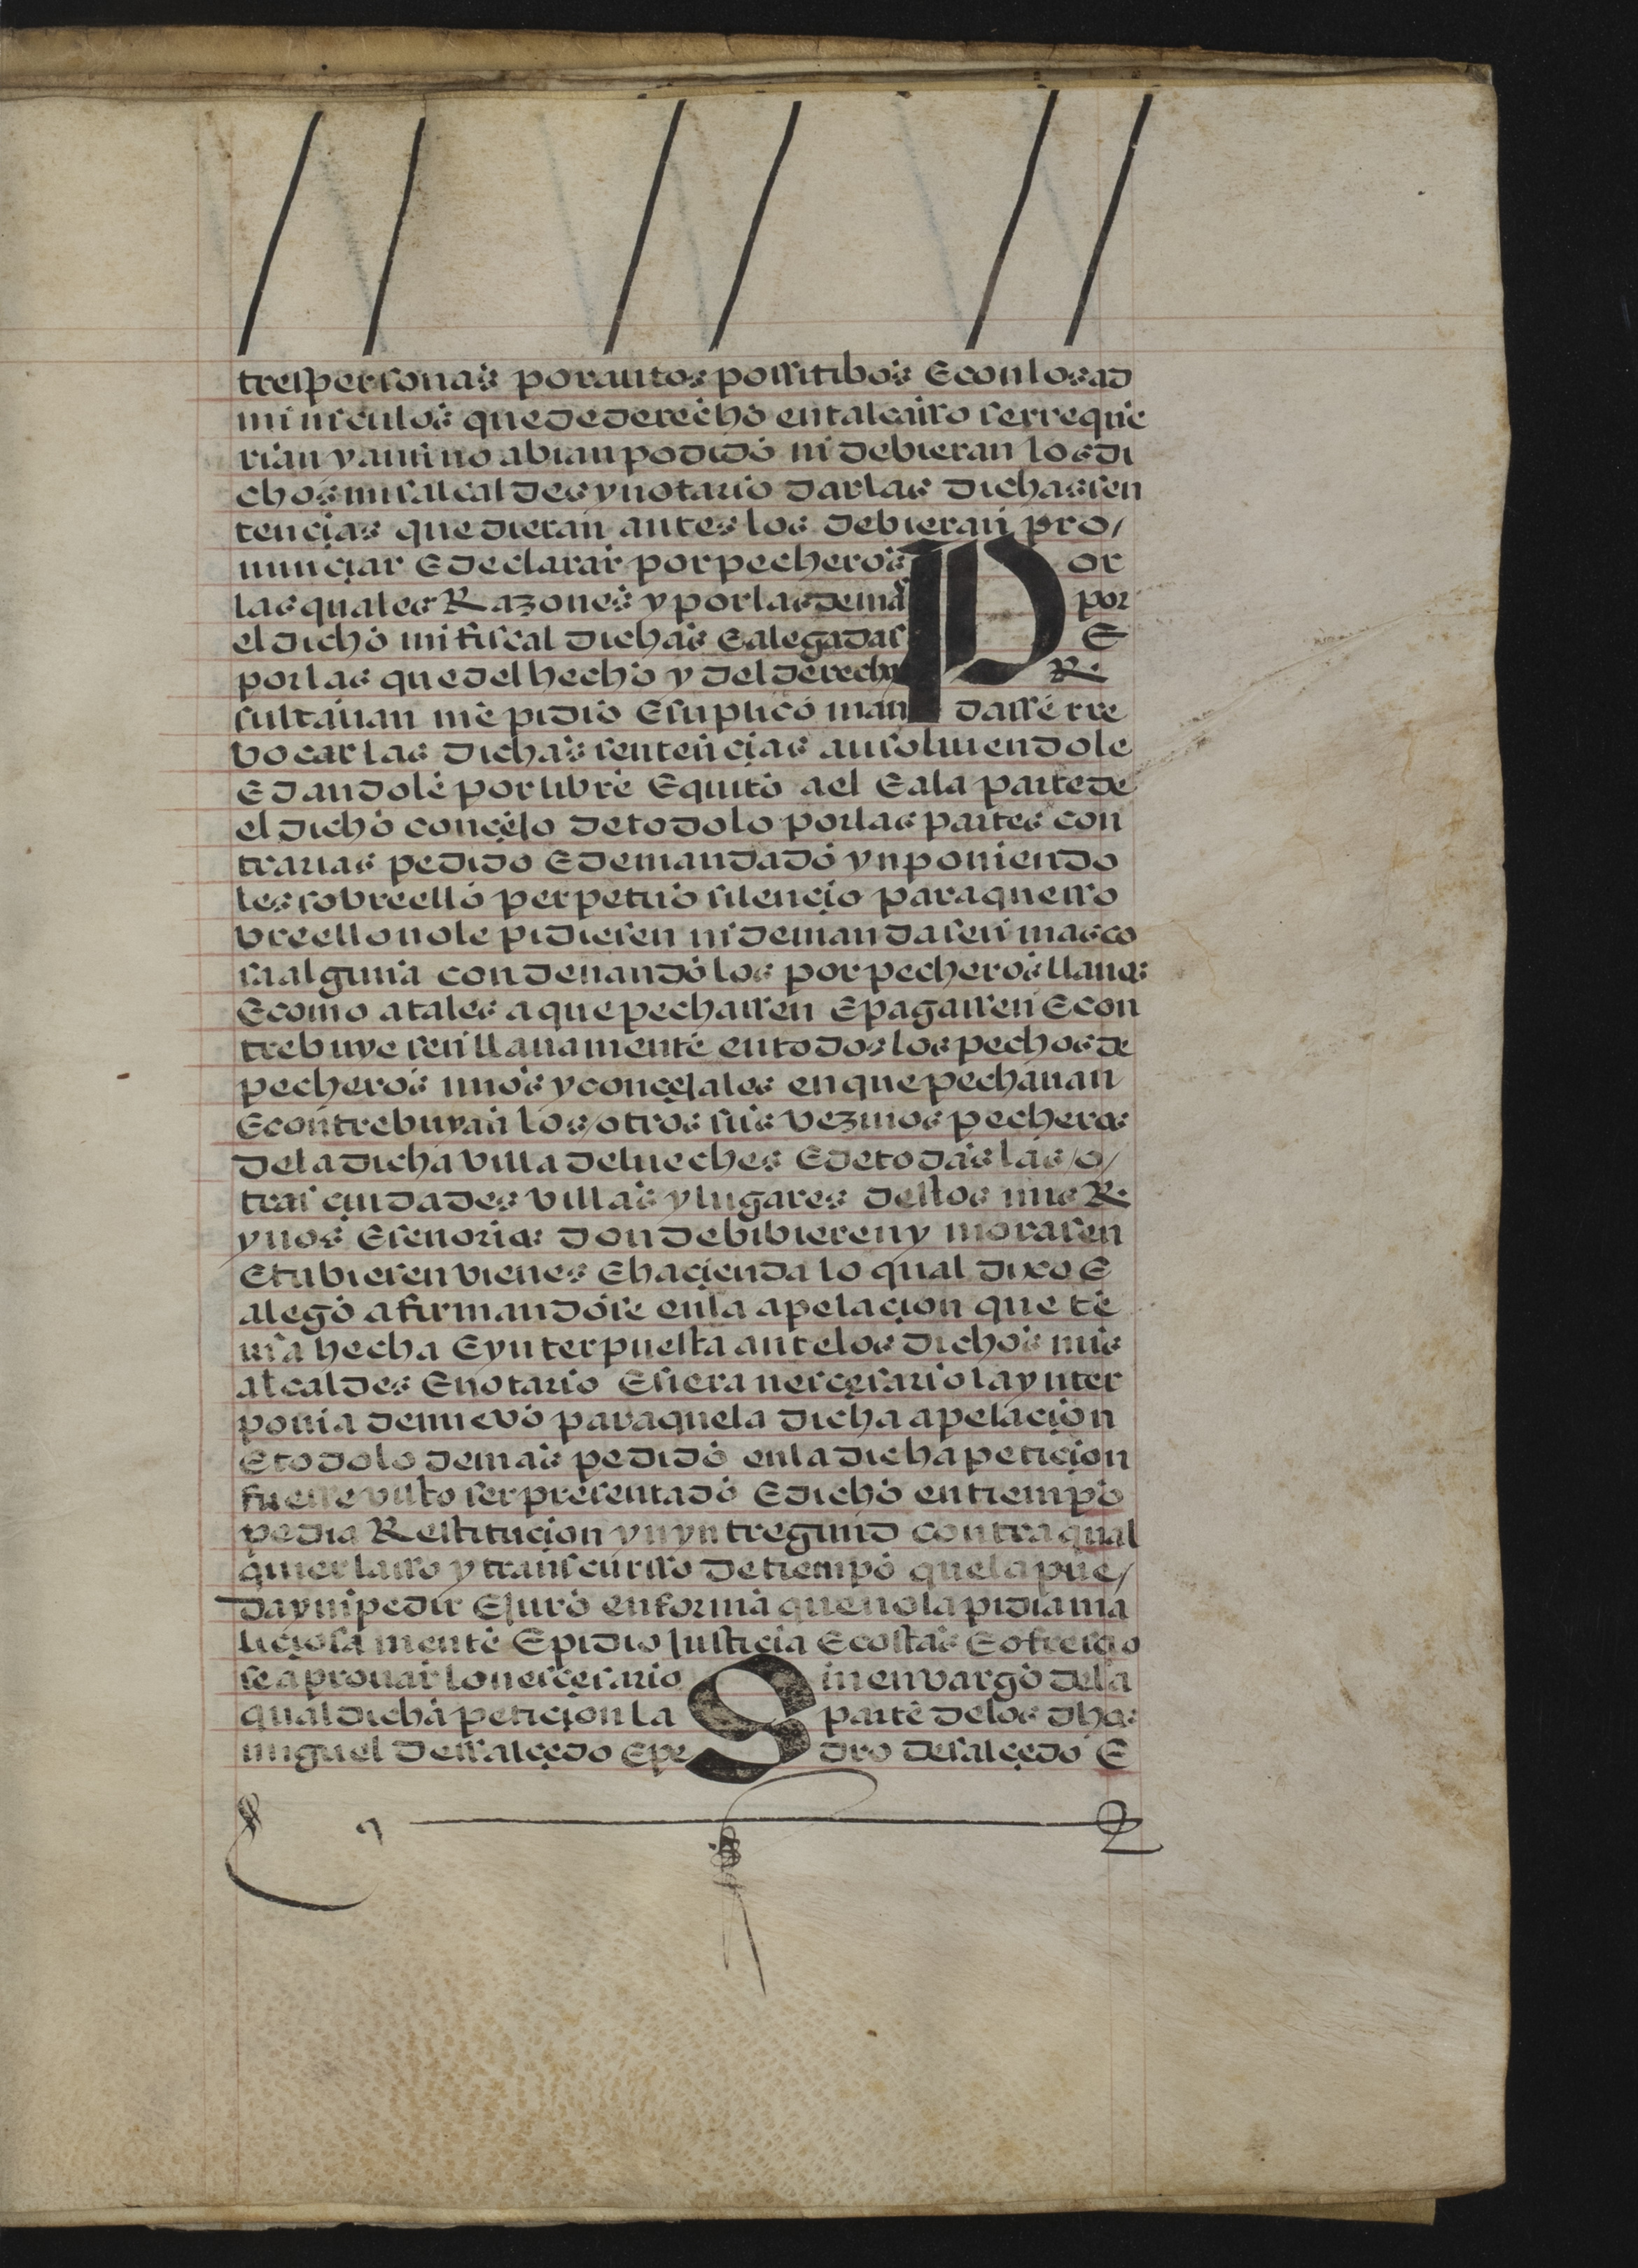 tres personas por autos possitibos E con los ad
minículos que de derecho en tal caisso se rrequie
rian y ansi no abian podido ni debieran los di
chos mis alcaldes y notario dar las dichas sen
tencias que dieran antes los debieran pro/
nunçiar E declarar por pecheros Por
las quales Razones y por las demas por
el dicho mi fiscal dichas E alegadas E
por las que del hecho y del derecho Re
sultauan me pidio E suplico man dasse rre
bocar las dichas sentençias ausoluiendole
E dandole por libre E quito a el E a la parte de
el dicho conçejo de todo lo por las partes con
trarias pedido E demandado ynponiendo
les sobre ello perpetuo silençio para que sso
bre ello no le pidiesen ni demandasen mas co
sa alguna condenandolos por pecheros llanos
E como a tales a que pechassen E pagassen E con
trebuyesen llanamente en todos los pechos de
pecheros mios y conçejales en que pechauan
E contrebuyan los/otros sus vezinos pecheros
de la dicha villa de lueches E de todas las/o/
tras çiudades villas y lugares destos mis Re
ynos E señorios donde bibieren y morasen
E tubiesen vienes E haçienda lo qual dixo E
alego afirmandose en la apelaçion que te
nia hecha E ynterpuesta ante los dichos mis
alcaldes E notario E si era nesçesario la ynter
ponia de nuevo para que la dicha apelaçion
E todo lo demas pedido en la dicha petiçion
fuesse visto ser presentado E dicho en tiempo
pedia Restituçion yn yntregund contra qual
quier lasso y transcursso de tiempo que la pue/
da ynpedir E juro en forma que no la pidia ma
liçiosamente E pidio justicia E costas E ofresçio
se a prouar lo nesçesario Sin envargo de la
qual dicha petiçion la parte de los dhos
miguel de ssalçedo E pe dro de salçedo E